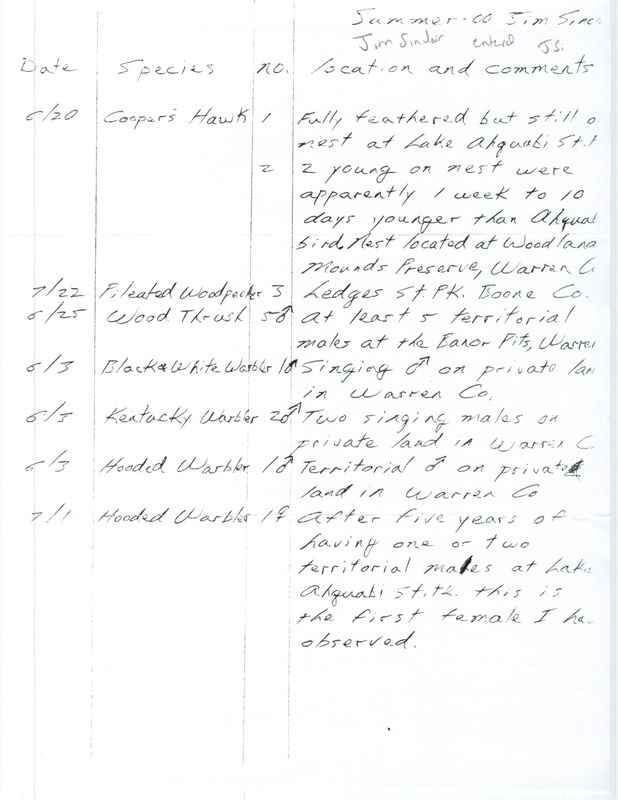 Summer-00 Jim Sincl
Jim Sinclair entered JSi
Date Species no. location and comments
6/20 Cooper's Hawk 1 Fully feathered but still o
nest at Lake Ahquabi St. P
2 2 young on nest were
apparently 1 week to 10
days younger than Ahquab
bird. Nest located at Woodland
Mounds Preserve, Warren C
7/22 Pileated Woodpecker 3 Ledges St. Pk. Boone Co.
6/25 Wood Thrush 5♂ At least 5 territorial
males at the Banor Pits, Warren
6/3 Black & White Warbler 1♂ Singing ♂ on private lan
in Warren Co.
6/3 Kentucky Warbler 2♂ Two singing males on
private land in Warren C
6/3 Hooded Warbler 1♂ Territorial ♂ on private
land in Warren Co
7/1 Hooded Warbler 1♀ After five years of
having one or two
territorial males at Lake
Ahquabi St. Pk. this is
the first female I ha
observed.